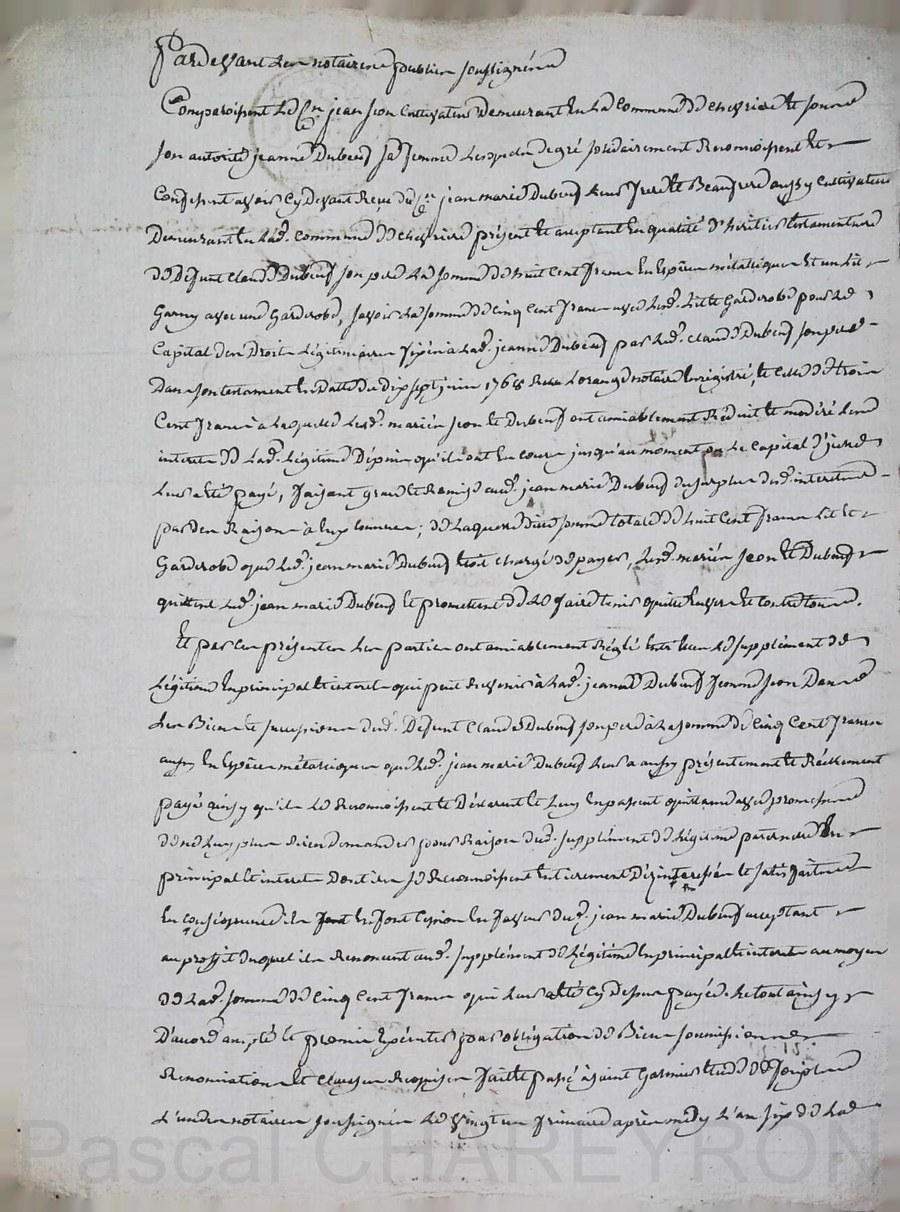 Pardevant les notaires publics soussignés
Comparoissent le Cen jean jeon Cultivateur Demeurant en la Commune de chevriere et sous
son autorité jeanne Dubeuf sa femme lesquels de gré solidairement Reconnoissent et
Confessent avoir Cy Devant Reçu du Cen jean marie Dubeuf leur frere et Beaufrere aussy Cultivateur
Demeurant en lad. Commune de chevriere présent et acceptant en qualité d'héritier testamentaire
de Défunt Claude Dubeuf son pere la somme de huit Cent francs en Espèces métalliques et un lit
Garny avec une Garderobe, savoir la somme de Cinq Cent francs avec lesd. lit et Garderobe pour le
Capital des Droits Légitimaires fixés à lad. jeanne Dubeuf par led. Claude Dubeuf son pere
Dans son testament en Datte du Dix sept juin 1768 Reçu notaire enrégistré, et celle de trois
Cent francs à laquelle lesd. mariés jeon et Dubeuf ont amiablement Réduit et modéré les
interets de lad. Légitime Depuis qu'ils ont en cours jusqu'au moment où le Capital d'icelle
leur a été payé, faisant grace et Remise aud. jean marie Dubeuf du surplus desd. interets
par des Raisons à eux Connues; de laquelle dite somme totale de huit Cent francs lit et
Garderobe que led. jean marie Dubeuf étoit chargé de payer, lesd. mariés jeon et Dubeuf
quittent led. jean marie Dubeuf et promettent de le faire tenir quitte envers et contre tous.
Et par Ces présentes les parties ont amiablement Réglé entr'elles le supplément de
Légitime en principal et interets qui peut Revenir à lad. jeanne Dubeuf femme jeon Dans
les Biens et succession dud. Défunt Claude Dubeuf son pere à la somme de Cinq Cent francs
aussy en Espèces métalliques que led. jean marie Dubeuf leur a aussy présentement et Réellement
payé ainsy qu'ils le Reconnoissent et Déclarent et luy en passent quittance avec promesse
de ne luy plus Rien Demander pour Raison dud. supplément de Légitime paternelle en
principal et interets Dont ils se Reconnoissent entierement Dézintéressés et satisfaits
en conséquence ils en font Cession en faveur dud. jean marie Dubeuf acceptant
au proffit duquel ils Renoncent aud. supplément de Légitime en principal et interets au moyen
de lad. somme de Cinq Cent francs qui leur a été Cy Dessus payée. Le tout ainsy
D'accord accepté et promis Exécuter pour obligation de Biens soumissions
Renonciations et Clauses Requises fait et passé à saint Galmier Etude de
L'un des notaires soussignés le vingt un frimaire après midy L'an six de la
Pascal CHAREYRON